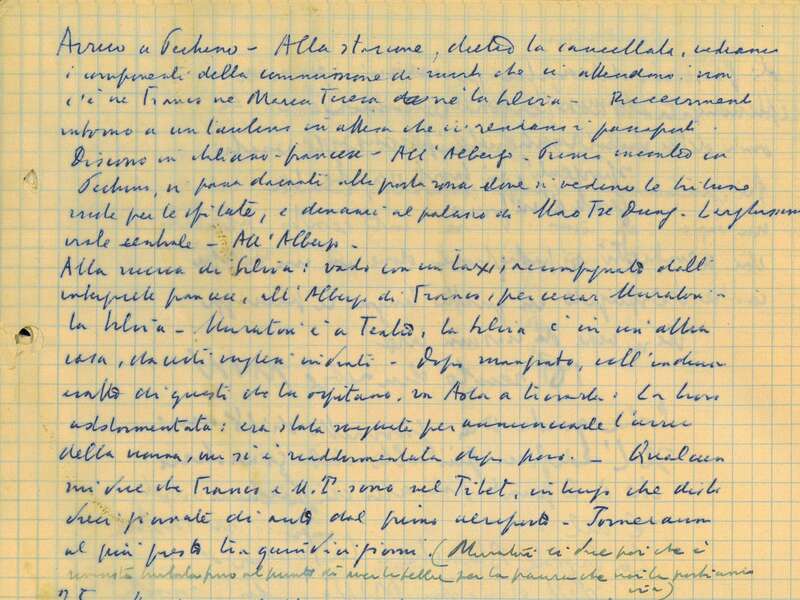 Arrivo a Pechino - Alla stazione, dietro la cancellata, vediamo
i componenti della commissione di che ci attendono: non
c'è nè Franco nè Maria Teresa nè la Silvia - Ricevimento
intorno a un tavolino in attesa che ci rendano i passaporti.
Discorso in italiano-francese - All'Albergo. Primo incontro con
Pechino, si passa davanti alla porta rossa dove si vedono le tribune
per le sfilate, e dinanzi al palazzo di Mao Tse Dung. Larghissimo
viale centrale - All'Albergo -
Alla ricerca di Silvia: vado con un taxi, accompagnato dall'
interprete francese, all'Albergo di Franco, per cercar Muratori -
la Silvia - Muratori è a Teatro, la Silvia è in un'altra
casa, - Dopo mangiato, coll'indirizzo
esatto di questi che la ospitano, va Ada a trovarla: La trova
addormentata: era stata svegliata per annunciarle l'arrivo
della nonna, ma si è riaddormentata dopo poco. - Qualcuno
mi dice che Franco e M.T. sono nel Tibet, in luogo che dista
dieci giornate di auto dal primo aeroporto - Torneranno
al più presto tra quindici giorni. (Muratori ci dice poi che è
rimasta turbata fino al punto di aver la febbre per la paura che noi la portiamo
via)